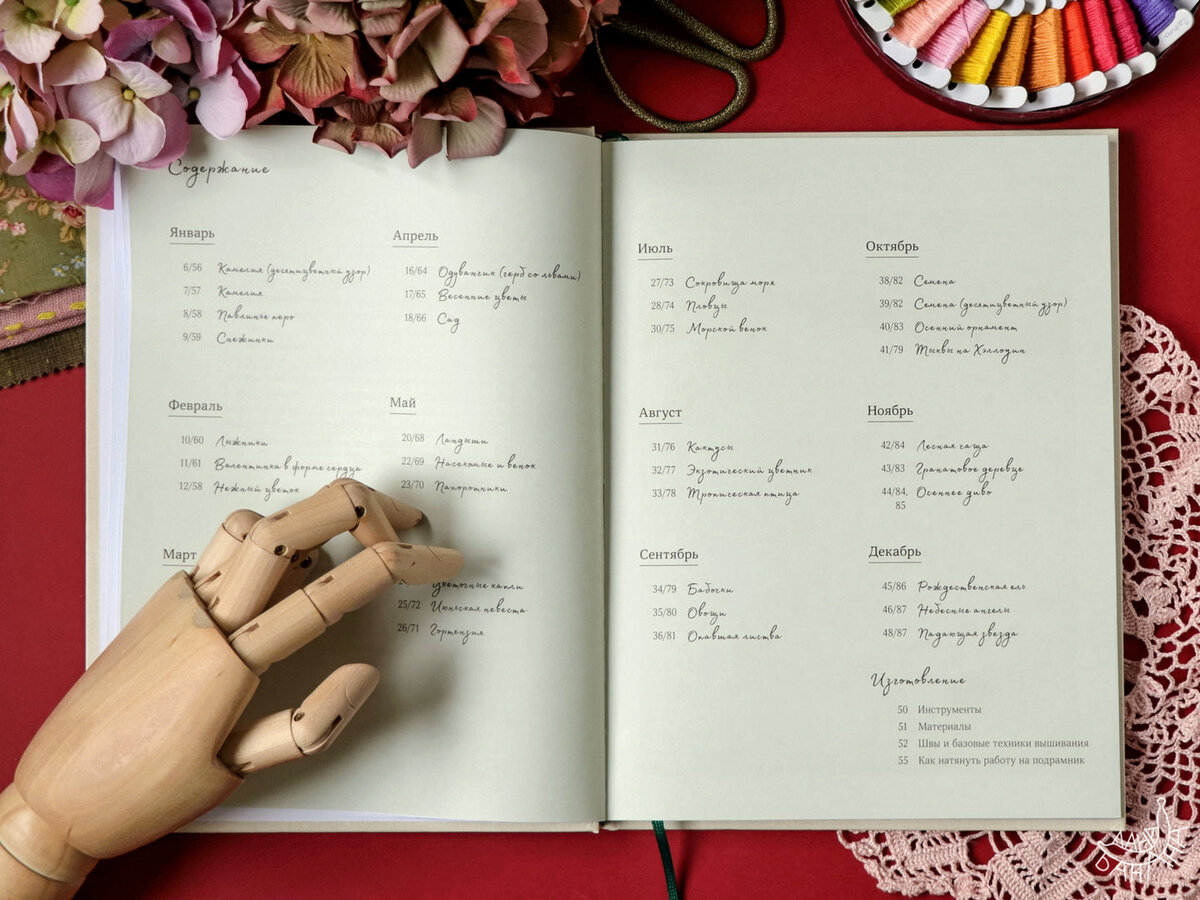 Содержание
Январь
6/56 Камелия (десятицветный узор)
7/57 Камелия
8/58 Павлинье перо
9/59 Снежинки
Февраль
10/60 Лыжники
11/61 Валентинка в форме сердца
12/58 Нежный цветок
Март
Апрель
16/64 Одуванчик (герб со львами)
17/65 Весенние цветы
18/66 Сад
Май
20/68 Ландыши
22/69 Насекомые и венок
23/70 Папоротники
Цветочные капли
25/72 Июньская невеста
26/71 Гортензия
Июль
27/73 Сокровища моря
28/74 Пловцы
30/75 Морской венок
Август
31/76 Кактусы
32/77 Экзотический цветник
33/78 Тропическая птица
Сентябрь
34/79 Бабочки
35/80 Овощи
36/81 Опавшая листва
Октябрь
38/82 Семена
39/82 Семена (десятицветный узор)
40/83 Осенний орнамент
41/79 Тыквы на Хэллоуин
Ноябрь
42/84 Лесная чаща
43/83 Гранатовое деревце
44/84, Осеннее диво
85
Декабрь
45/86 Рождественская ель
46/87 Небесные ангелы
48/87 Падающая звезда
Изготовление
50 Инструменты
51 Материалы
52 Швы и базовые техники вышивания
55 Как натянуть работу на подрамник